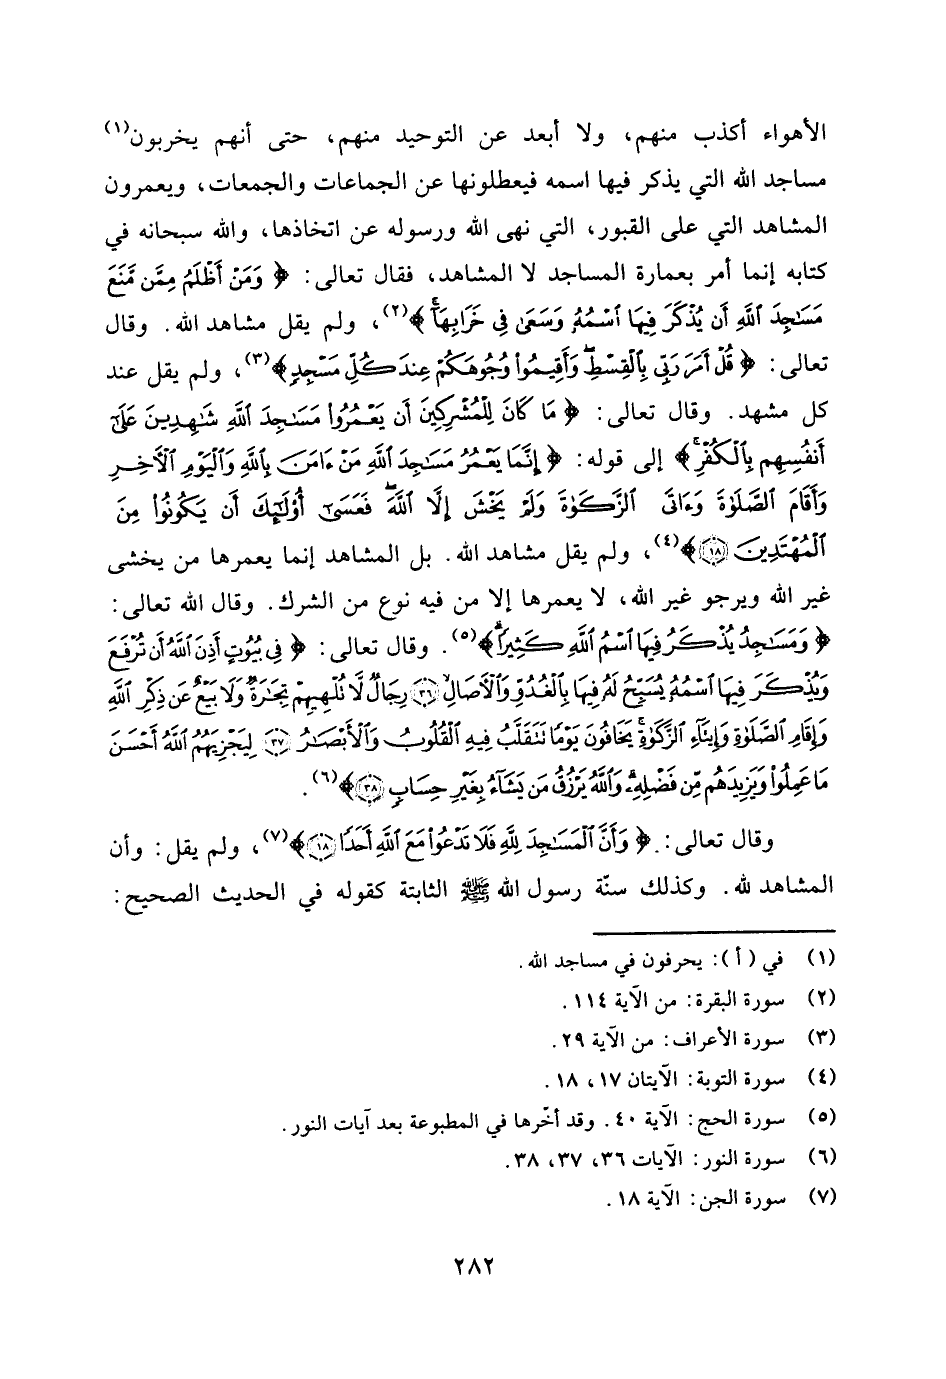 الأهواء أكذب منهم، ولا أبعد عن التوحيد منهم، حتى أنهم يخربون(١)
مساجد الله التي يذكر فيها اسمه فيعطلونها عن الجماعات والجمعات، ويعمرون
المشاهد التي على القبور، التي نهى الله ورسوله عن اتخاذها، والله سبحانه في
كتابه إنما أمر بعمارة المساجد لا المشاهد، فقال تعالى: ﴿ وَمَنْ أَظْلَمُ مِمَّن مَّنَعَ
مَسَٰجِدَ ٱللَّهِ أَن يُذْكَرَ فِيهَا ٱسْمُهُۥ وَسَعَىٰ فِى خَرَابِهَآ ﴾(٢)، ولم يقل مشاهد الله. وقال
تعالى: ﴿ قُلْ أَمَرَ رَبِّى بِٱلْقِسْطِ وَأَقِيمُوا۟ وُجُوهَكُمْ عِندَ كُلِّ مَسْجِدٍ ﴾(٣)، ولم يقل عند
كل مشهد. وقال تعالى: ﴿ مَا كَانَ لِلْمُشْرِكِينَ أَن يَعْمُرُوا۟ مَسَٰجِدَ ٱللَّهِ شَٰهِدِينَ عَلَىٰٓ
أَنفُسِهِم بِٱلْكُفْرِ ﴾ إلى قوله: ﴿ إِنَّمَا يَعْمُرُ مَسَٰجِدَ ٱللَّهِ مَنْ ءَامَنَ بِٱللَّهِ وَٱلْيَوْمِ ٱلْءَاخِرِ
وَأَقَامَ ٱلصَّلَوٰةَ وَءَاتَى ٱلزَّكَوٰةَ وَلَمْ يَخْشَ إِلَّا ٱللَّهَ فَعَسَىٰٓ أُو۟لَٰٓئِكَ أَن يَكُونُوا۟ مِنَ
ٱلْمُهْتَدِينَ ١٨ ﴾(٤)، ولم يقل مشاهد الله. بل المشاهد إنما يعمرها من يخشى
غير الله ويرجو غير الله، لا يعمرها إلا من فيه نوع من الشرك. وقال الله تعالى:
﴿ وَمَسَٰجِدُ يُذْكَرُ فِيهَا ٱسْمُ ٱللَّهِ كَثِيرًا ﴾(٥). وقال تعالى: ﴿ فِى بُيُوتٍ أَذِنَ ٱللَّهُ أَن تُرْفَعَ
وَيُذْكَرَ فِيهَا ٱسْمُهُۥ يُسَبِّحُ لَهُۥ فِيهَا بِٱلْغُدُوِّ وَٱلْءَاصَالِ ٣٦ رِجَالٌ لَّا تُلْهِيهِمْ تِجَٰرَةٌ وَلَا بَيْعٌ عَن ذِكْرِ ٱللَّهِ
وَإِقَامِ ٱلصَّلَوٰةِ وَإِيتَآءِ ٱلزَّكَوٰةِ يَخَافُونَ يَوْمًا تَتَقَلَّبُ فِيهِ ٱلْقُلُوبُ وَٱلْأَبْصَٰرُ ٣٧ لِيَجْزِيَهُمُ ٱللَّهُ أَحْسَنَ
مَا عَمِلُوا۟ وَيَزِيدَهُم مِّن فَضْلِهِۦ وَٱللَّهُ يَرْزُقُ مَن يَشَآءُ بِغَيْرِ حِسَابٍ ٣٨ ﴾(٦).
وقال تعالى: ﴿ وَأَنَّ ٱلْمَسَٰجِدَ لِلَّهِ فَلَا تَدْعُوا۟ مَعَ ٱللَّهِ أَحَدًا ١٨ ﴾(٧)، ولم يقل: وأن
المشاهد لله. وكذلك سنّة رسول الله ﷺ الثابتة كقوله في الحديث الصحيح:
(١) في (أ): يحرفون في مساجد الله.
(٢) سورة البقرة: من الآية ١١٤.
(٣) سورة الأعراف: من الآية ٢٩.
(٤) سورة التوبة: الآيتان ١٧، ١٨.
(٥) سورة الحج: الآية ٤٠. وقد أخّرها في المطبوعة بعد آيات النور.
(٦) سورة النور: الآيات ٣٦، ٣٧، ٣٨.
(٧) سورة الجن: الآية ١٨.
٢٨٢